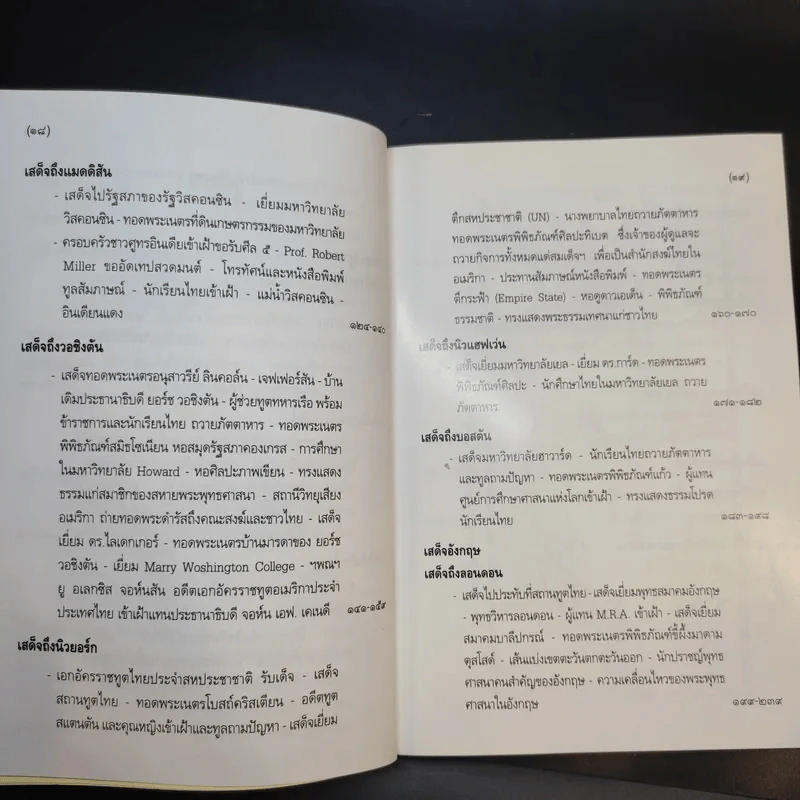 (๑๘)
เสด็จถึงแมดดิสัน
- เสด็จไปรัฐสภาของรัฐวิสคอนซิน - เยี่ยมมหาวิทยาลัย
วิสคอนซิน - ทอดพระเนตรที่ดินเกษตรกรรมของมหาวิทยาลัย
- ครอบครัวชาวศูทรอินเดียเข้าเฝ้าขอรับศีล ๕ - Prof. Robert
Miller ขออัดเทปสวดมนต์ - โทรทัศน์และหนังสือพิมพ์
ทูลสัมภาษณ์ - นักเรียนไทยเข้าเฝ้า - แม่น้ำวิสคอนซิน -
อินเดียนแดง
๑๒๔-๑๔๐
เสด็จถึงวอชิงตัน
- เสด็จทอดพระเนตรอนุสาวรีย์ ลินคอล์น - เจฟเฟอร์สัน - บ้าน
เดิมประธานาธิบดี ยอร์ช วอชิงตัน - ผู้ช่วยทูตทหารเรือ พร้อม
ข้าราชการและนักเรียนไทย ถวายภัตตาหาร - ทอดพระเนตร
พิพิธภัณฑ์สมิธโซเนียน หอสมุดรัฐสภาคองเกรส - การศึกษา
ในมหาวิทยาลัย Howard - หอศิลปะภาพเขียน - ทรงแสดง
ธรรมแก่สมาชิกของสหายพระพุทธศาสนา - สถานีวิทยุเสียง
อเมริกา ถ่ายทอดพระดำรัสถึงคณะสงฆ์และชาวไทย - เสด็จ
เยี่ยม ดร.ไลเดกเกอร์ - ทอดพระเนตรบ้านมารดาของ ยอร์ช
วอชิงตัน - เยี่ยม Marry Woshington College - ฯพณฯ
ยู อเลกซิส จอห์นสัน อดีตเอกอัครราชทูตอเมริกาประจำ
ประเทศไทย เข้าเฝ้าแทนประธานาธิบดี จอห์น เอฟ. เคเนดี ๑๔๑-๑๕๙
เสด็จถึงนิวยอร์ก
- เอกอัครราชทูตไทยประจำสหประชาชาติ รับเด็จ - เสด็จ
สถานทูตไทย - ทอดพระเนตรโบสถ์คริสเตียน - อดีตทูต
สแตนตัน และคุณหญิงเข้าเฝ้าและทูลถามปัญหา - เสด็จเยี่ยม
(๑๙)
ตึกสหประชาชาติ (UN) - นางพยาบาลไทยถวายภัตตาหาร
ทอดพระเนตรพิพิธภัณฑ์ศิลปะทิเบต ซึ่งเจ้าของผู้ดูแลจะ
ถวายกิจการทั้งหมดแด่สมเด็จฯ เพื่อเป็นสำนักสงฆ์ไทยใน
อเมริกา - ประทานสัมภาษณ์หนังสือพิมพ์ - ทอดพระเนตร
ตึกระฟ้า (Empire State) - หอดูดาวเอเด็น - พิพิธภัณฑ์
ธรรมชาติ - ทรงแสดงพระธรรมเทศนาแก่ชาวไทย ๑๖๐-๑๗๐
เสด็จถึงนิวแฮฟเว่น
- เสด็จเยี่ยมมหาวิทยาลัยเยล - เยี่ยม ดร.การ์ด - ทอดพระเนตร
พิพิธภัณฑ์ศิลปะ - นักศึกษาไทยในมหาวิทยาลัยเยล ถวาย
ภัตตาหาร ๑๗๑-๑๘๒
เสด็จถึงบอสตัน
- เสด็จมหาวิทยาลัยฮาวาร์ด - นักเรียนไทยถวายภัตตาหาร
และทูลถามปัญหา - ทอดพระเนตรพิพิธภัณฑ์แก้ว - ผู้แทน
ศูนย์การศึกษาศาสนาแห่งโลกเข้าเฝ้า - ทรงแสดงธรรมโปรด
นักเรียนไทย ๑๘๓-๑๙๘
เสด็จอังกฤษ
เสด็จถึงลอนดอน
- เสด็จไปประทับที่สถานทูตไทย - เสด็จเยี่ยมพุทธสมาคมอังกฤษ
- พุทธวิหารลอนดอน - ผู้แทน M.R.A. เข้าเฝ้า - เสด็จเยี่ยม
สมาคมบาลีปกรณ์ - ทอดพระเนตรพิพิธภัณฑ์ขี้ผึ้งมาดาม
ตุสโสด์ - เส้นแบ่งเขตตะวันตกตะวันออก - นักปราชญ์พุทธ
ศาสนาคนสำคัญของอังกฤษ - ความเคลื่อนไหวของพระพุทธ
ศาสนาในอังกฤษ ๑๙๙-๒๓๙